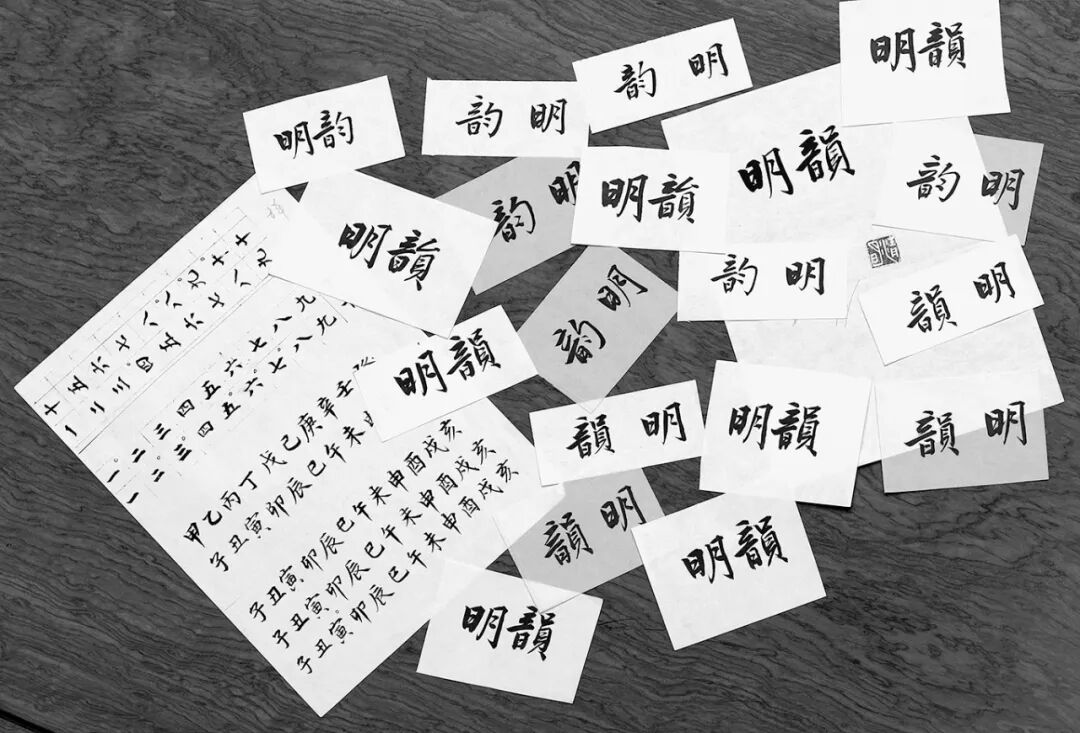 明韻
韵 明
明韵
韵 明
明韻
韵 明
韵 明
明韻
明韻
韵 明
韻 明
韵 明
明韻
韻 明
明韻
韻 明
韻 明
明韻
明韻
一二三四五六七八九
一二三四五六七八九
甲乙丙丁戊己庚辛壬
子丑寅卯辰巳午未
子丑寅卯辰巳午未申酉戌亥
子丑寅卯辰巳午未申酉戌亥
子丑寅卯辰巳午未申酉戌亥